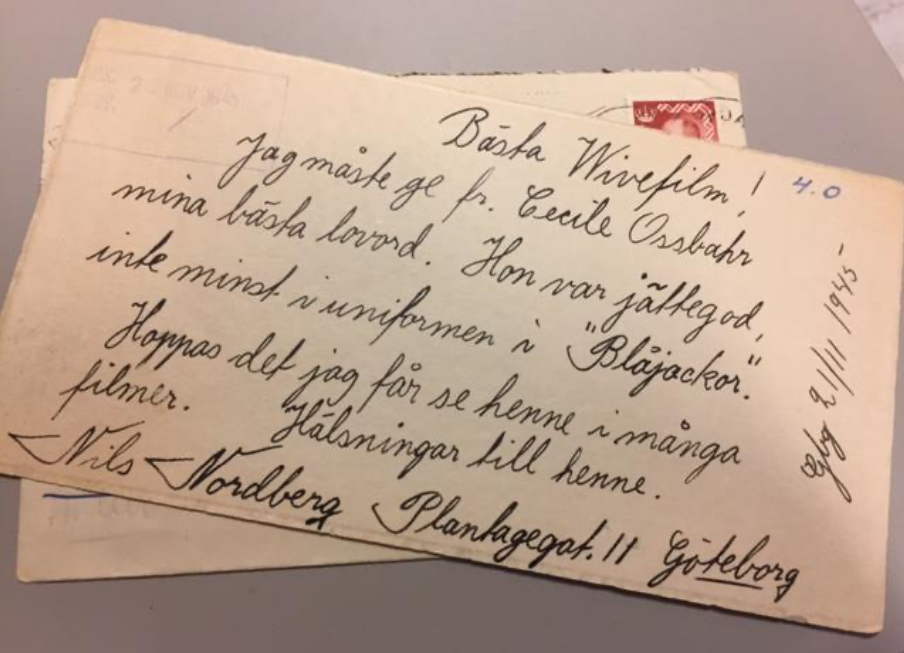 Bästa Wivefilm!
4.0
Jag måste ge fr. Cecile Ossbahr
mina bästa lovord. Hon var jättegod,
inte minst i uniformen i "Blåjackor."
Hoppas det jag får se henne i många
filmer. Hälsningar till henne.
Nils Nordberg Plantagegat. 11 Göteborg
Gbg 21/11 1945